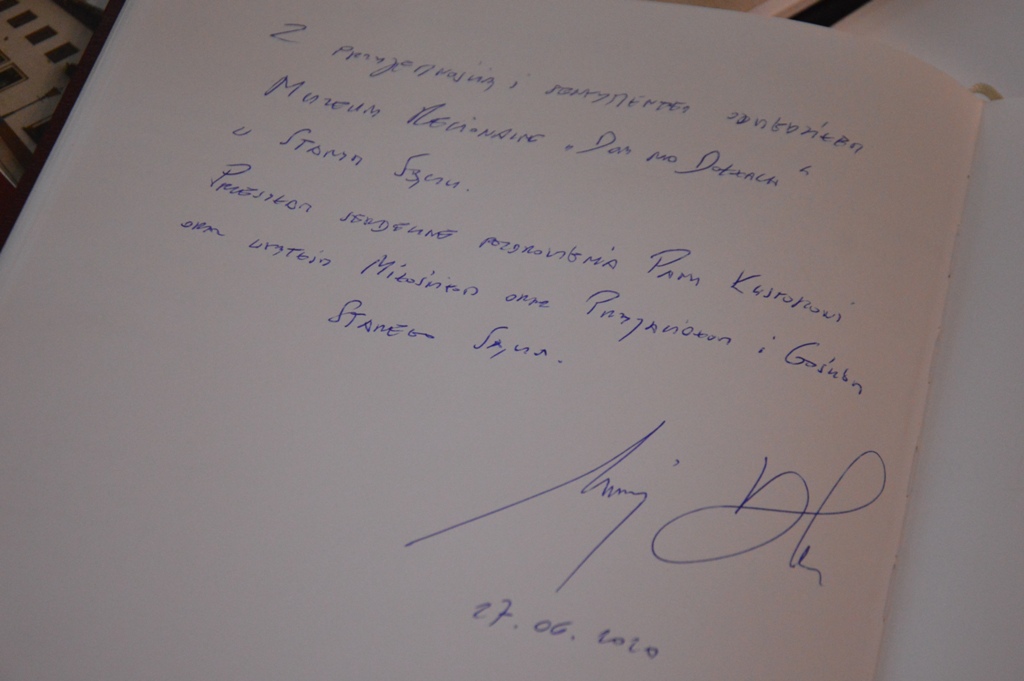 Z PRZYJEMNOŚCIĄ i SENTYMENTEM ODWIEDZIŁEM
MUZEUM REGIONALNE „DOM NA DOŁKACH"
W STARYM SĄCZU.
PRZESYŁAM SERDECZNE POZDROWIENIA PANU KUSTOSZOWI
ORAZ WSZYSTKIM MIŁOŚNIKOM ORAZ PRZYJACIOŁOM i GOŚCIOM
STAREGO SĄCZA.
27.06.2020